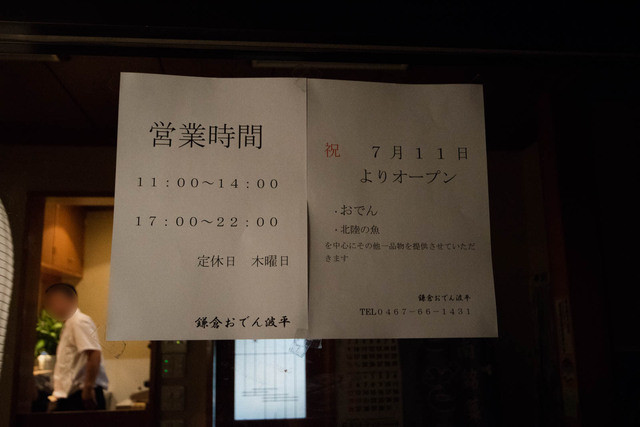 営業時間
11:00～14:00
17:00～22:00
定休日 木曜日
鎌倉おでん波平
祝 7月11日
よりオープン
・おでん
・北陸の魚
を中心にその他一品物を提供させていただ
きます
鎌倉おでん波平
TEL0467-66-1431